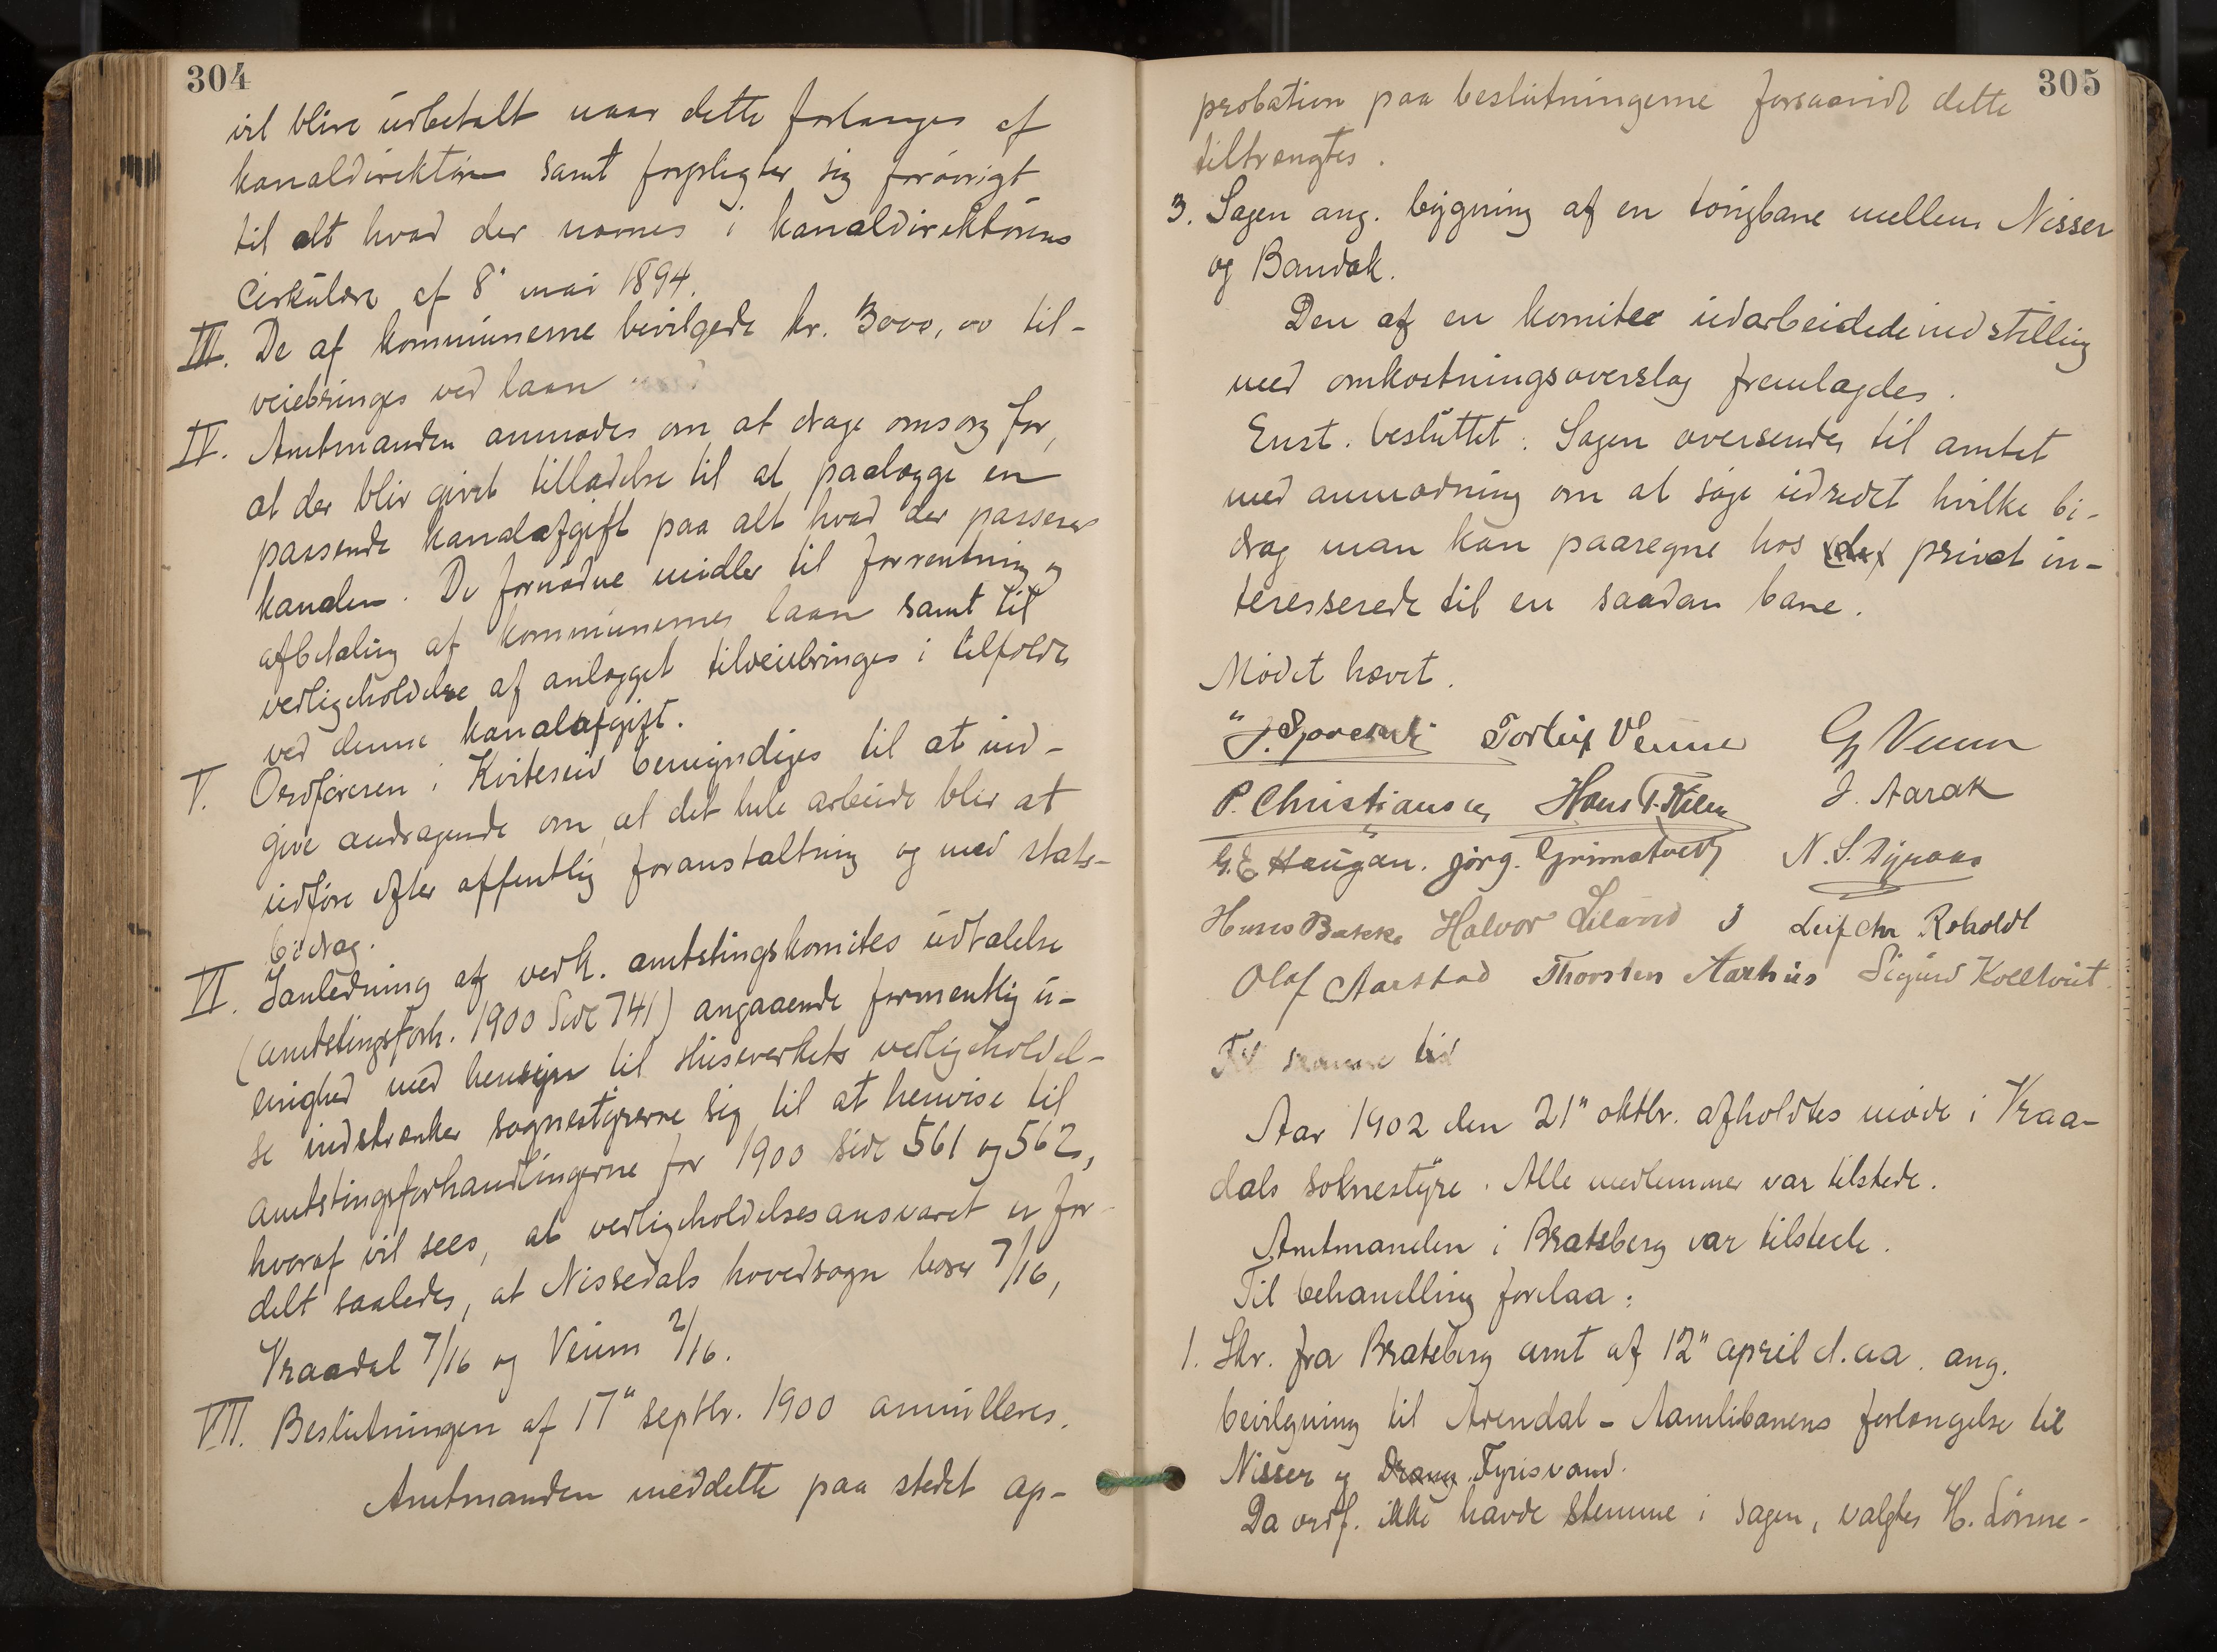 304
vil blive udbetalt naar dette forlanges af
kanaldirektøren samt forpligter sig forøvrigt
til alt hvad der nævnes i kanaldirektørens
cirkulære af 8' mai 1894.
III. De af kommunerne bevilgede kr. 3000,00 til-
veiebringes ved laan
IV. Amtmanden anmodes om at drage omsorg for,
at der blir givet tilladelse til at paalægge en
passende kanalafgift paa alt hvad der passerer
kanalen. De fornødne midler til forrentning og
afbetaling af kommunernes laan samt til
vedligeholdelse af anlægget tilveiebringes i tilfælde
ved denne kanalafgift.
V. Ordføreren i Kviteseid bemyndiges til at ind-
give andragende om, at det hele arbeide blir at
udføre efter offentlig foranstaltning og med stats-
bidrag.
VI. I anledning af vedk. amtstingskomites udtalelse
(amtstingsforh. 1900 Side 741) angaaende formentlig u-
enighed med hensyn til slusevækets vedligeholdel-
se indskrænker sognestyrerne sig til at henvise til
amtstingsforhandlingerne for 1900 side 561 og 562,
hvoraf vil sees, at vedligeholdelsesansvaret er for-
delt saaledes, at Nissedals hovedsogn bærer 7/16,
Vraadal 7/16 og Veum 2/16.
VII. Beslutningen af 17" septbr. 1900 annulleres.
Amtmanden meddelte paa stedet ap-
305
probation paa beslutningerne forsaavidt dette
tiltrængtes.
3. Sagen ang. bygning af en tougbane mellem Nisser
og Bandak.
Den af en komitee udarbeidede indstilling
med omkostningsoverslag fremlagdes.
Enst. besluttet: Sagen oversendes til amtet
med anmodning om at søge udredet hvilke bi-
drag man kan paaregne hos (de) privat in-
teresserede til en saadan bane.
Mødet hævet.
Torleif Venne G Veum
P. Christiansen Hans T. J. Aarak
G. E. Haugan. Jørg. Grimstvedt N. S.
Hans Bakke Halvor Leif Chr Roholdt
Olof Aarstad Thorsten Aarhus Sigurd Kvelltveit.
Til samme tid
Aar 1902 den 21" oktbr. afholdtes møde i Vraa-
dals soknestyre. Alle medlemmer var tilstede.
Amtmanden i Bratsberg var tilstede.
Til behandling forelaa:
1. Skr. fra Bratsberg amt af 12" april d.aa. ang.
bevilgning til Arendal - Aamlibanens forlængelse til
Nisser og Drang Fyrisvand.
Da ordf. ikke havde stemme i sagen, valgtes H. Lønne-